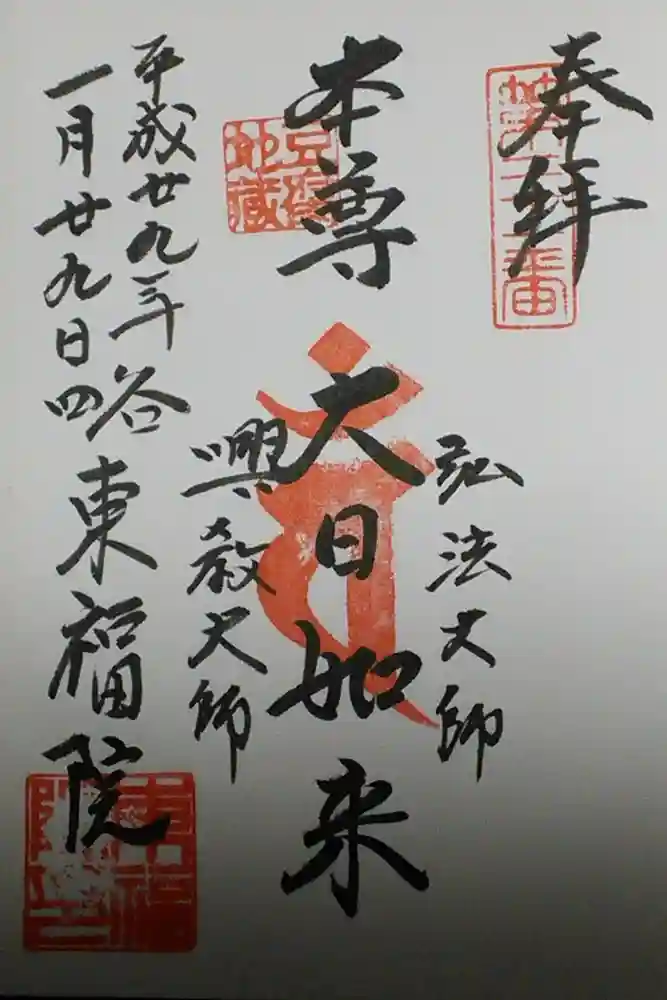 奉拝
弘法大師
本尊 大日如来
興教大師
平成廿九年
一月廿九日
四谷
東福院